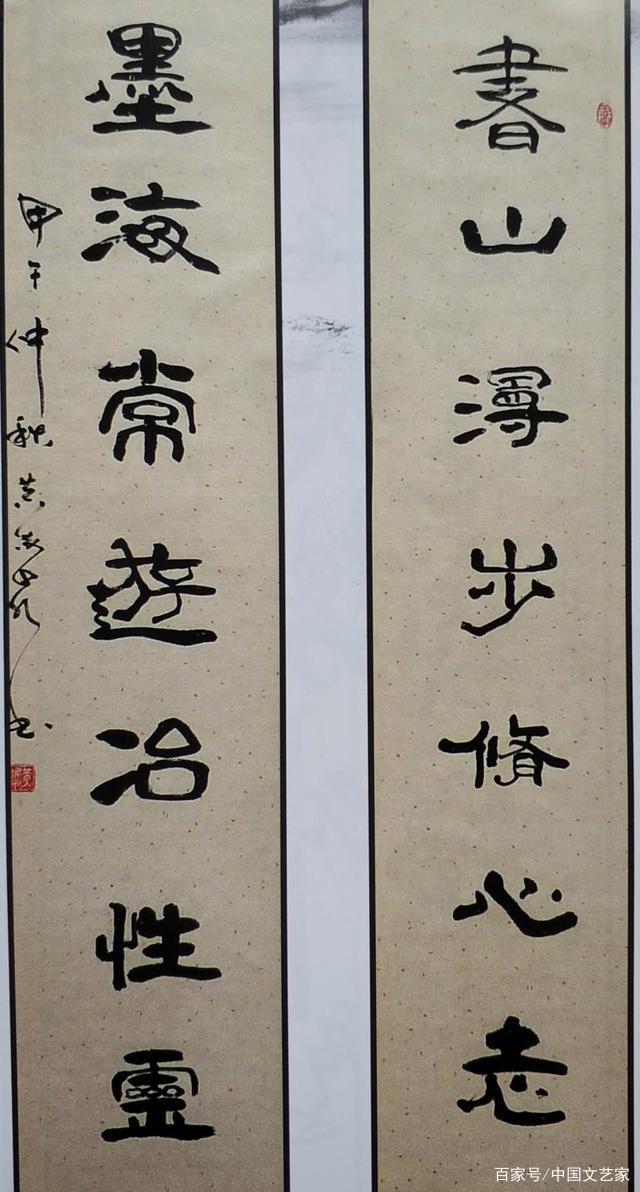 書山漫步脩心志
墨海常遊冶性靈
甲午仲秋
百家号/中国文艺家